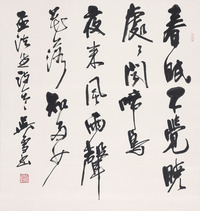 春眠不覺曉
處處聞啼鳥
夜來風雨聲
花落知多少
孟浩然詩